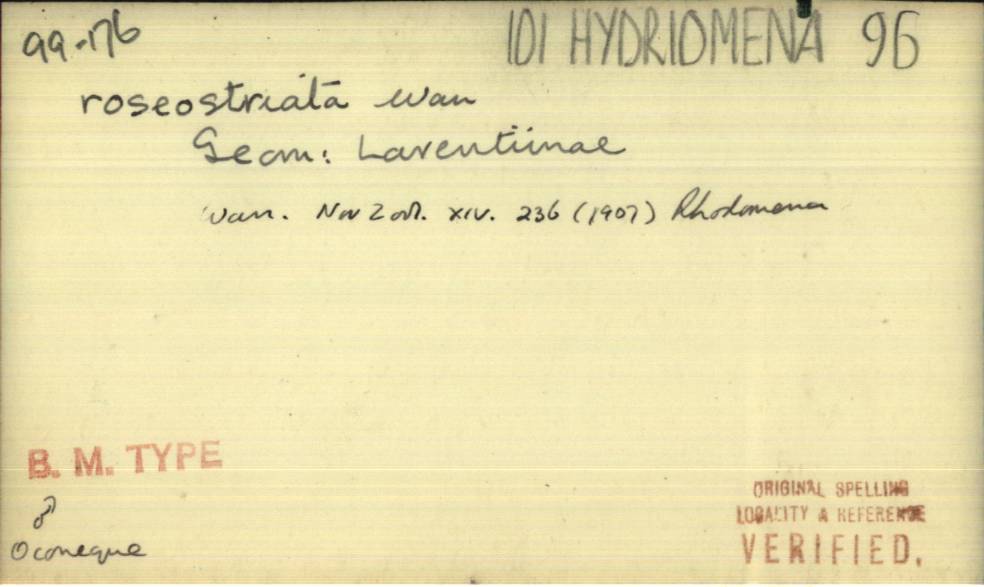 99-176
101 HYDRIOMENA 96
roseostriata Warr
Geom: Larentiinae
Warr. Nov Zool. XIV. 236 (1907) Rhodomena
B. M. TYPE
♂
Oconeque
ORIGINAL SPELLING
LOCALITY & REFERENCE
VERIFIED.